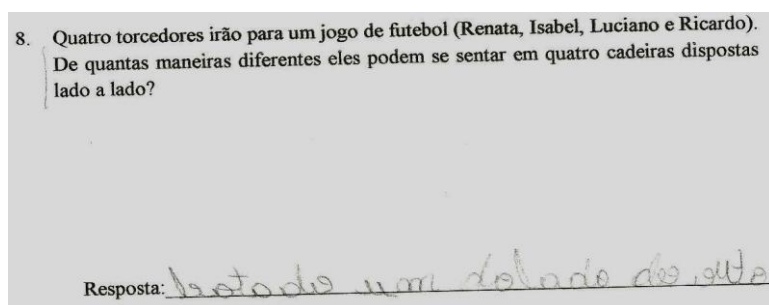 8. Quatro torcedores irão para um jogo de futebol (Renata, Isabel, Luciano e Ricardo).
De quantas maneiras diferentes eles podem se sentar em quatro cadeiras dispostas
lado a lado?
Resposta: um do lado do